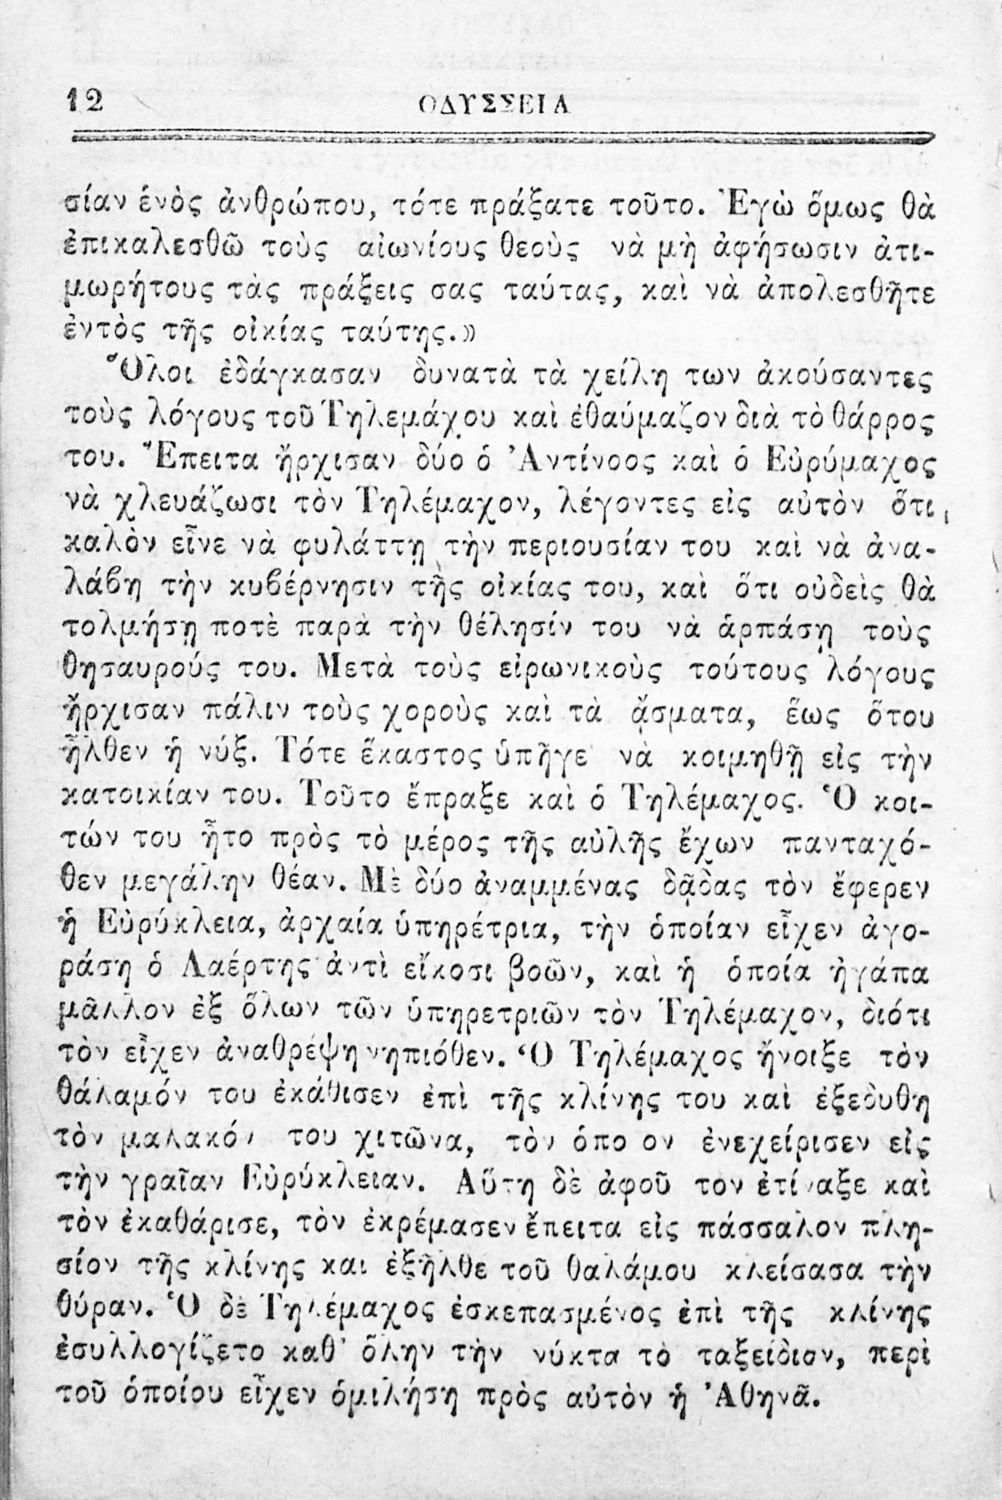 12 ΟΔΥΣΣΕΙΑ
σίαν ἑνὸς ἀνθρώπου, τότε πράξατε τοῦτο. Ἐγὼ ὅμως θὰ
ἐπικαλεσθῶ τοὺς αἰωνίους θεοὺς νὰ μὴ ἀφήσωσιν ἀτι-
μωρήτους τὰς πράξεις σας ταύτας, καὶ νὰ ἀπολεσθῆτε
ἐντὸς τῆς οἰκίας ταύτης.»
Ὅλοι ἐδάγκασαν δυνατὰ τὰ χείλη των ἀκούσαντες
τοὺς λόγους τοῦ Τηλεμάχου καὶ ἐθαύμαζον διὰ τὸ θάρρος
του. Ἔπειτα ἤρχισαν δύο ὁ Ἀντίνοος καὶ ὁ Εὐρύμαχος
νὰ χλευάζωσι τὸν Τηλέμαχον, λέγοντες εἰς αὐτὸν ὅτι
καλὸν εἶνε νὰ φυλάττῃ τὴν περιουσίαν του καὶ νὰ ἀνα-
λάβη τὴν κυβέρνησιν τῆς οἰκίας του, καὶ ὅτι οὐδεὶς θὰ
τολμήσῃ ποτὲ παρὰ τὴν θέλησίν του νὰ ἁρπάσῃ τοὺς
θησαυρούς του. Μετὰ τοὺς εἰρωνικοὺς τούτους λόγους
ἤρχισαν πάλιν τοὺς χοροὺς καὶ τὰ ᾄσματα, ἕως ὅτου
ἦλθεν ἡ νύξ. Τότε ἕκαστος ὑπῆγε νὰ κοιμηθῇ εἰς τὴν
κατοικίαν του. Τοῦτο ἔπραξε καὶ ὁ Τηλέμαχος. Ὁ κοι-
τών του ἦτο πρὸς τὸ μέρος τῆς αὐλῆς ἔχων πανταχό-
θεν μεγάλην θέαν. Μὲ δύο ἀναμμένας δᾷδας τὸν ἔφερεν
ἡ Εὐρύκλεια, ἀρχαία ὑπηρέτρια, τὴν ὁποίαν εἶχεν ἀγο-
ράση ὁ Λαέρτης ἀντὶ εἴκοσι βοῶν, καὶ ἡ ὁποία ἠγάπα
μᾶλλον ἐξ ὅλων τῶν ὑπηρετριῶν τὸν Τηλέμαχον, διότι
τὸν εἶχεν ἀναθρέψη νηπιόθεν. Ὁ Τηλέμαχος ἤνοιξε τὸν
θάλαμόν του ἐκάθισεν ἐπὶ τῆς κλίνης του καὶ ἐξεδυθη
τὸν μαλακόν του χιτῶνα, τὸν ὁποῖον ἐνεχείρισεν εἰς
τὴν γραῖαν Εὐρύκλειαν. Αὕτη δὲ ἀφοῦ τον ἐτίναξε καὶ
τὸν ἐκαθάρισε, τὸν ἐκρέμασεν ἔπειτα εἰς πάσσαλον πλη-
σίον τῆς κλίνης και ἐξῆλθε τοῦ θαλάμου κλείσασα τὴν
θύραν. Ὁ δὲ Τηλέμαχος ἐσκεπασμένος ἐπὶ τῆς κλίνης
ἐσυλλογίζετο καθ' ὅλην τὴν νύκτα τὸ ταξείδιον, περὶ
τοῦ ὁποίου εἶχεν ὁμιλήση πρὸς αὐτὸν ἡ Ἀθηνᾶ.